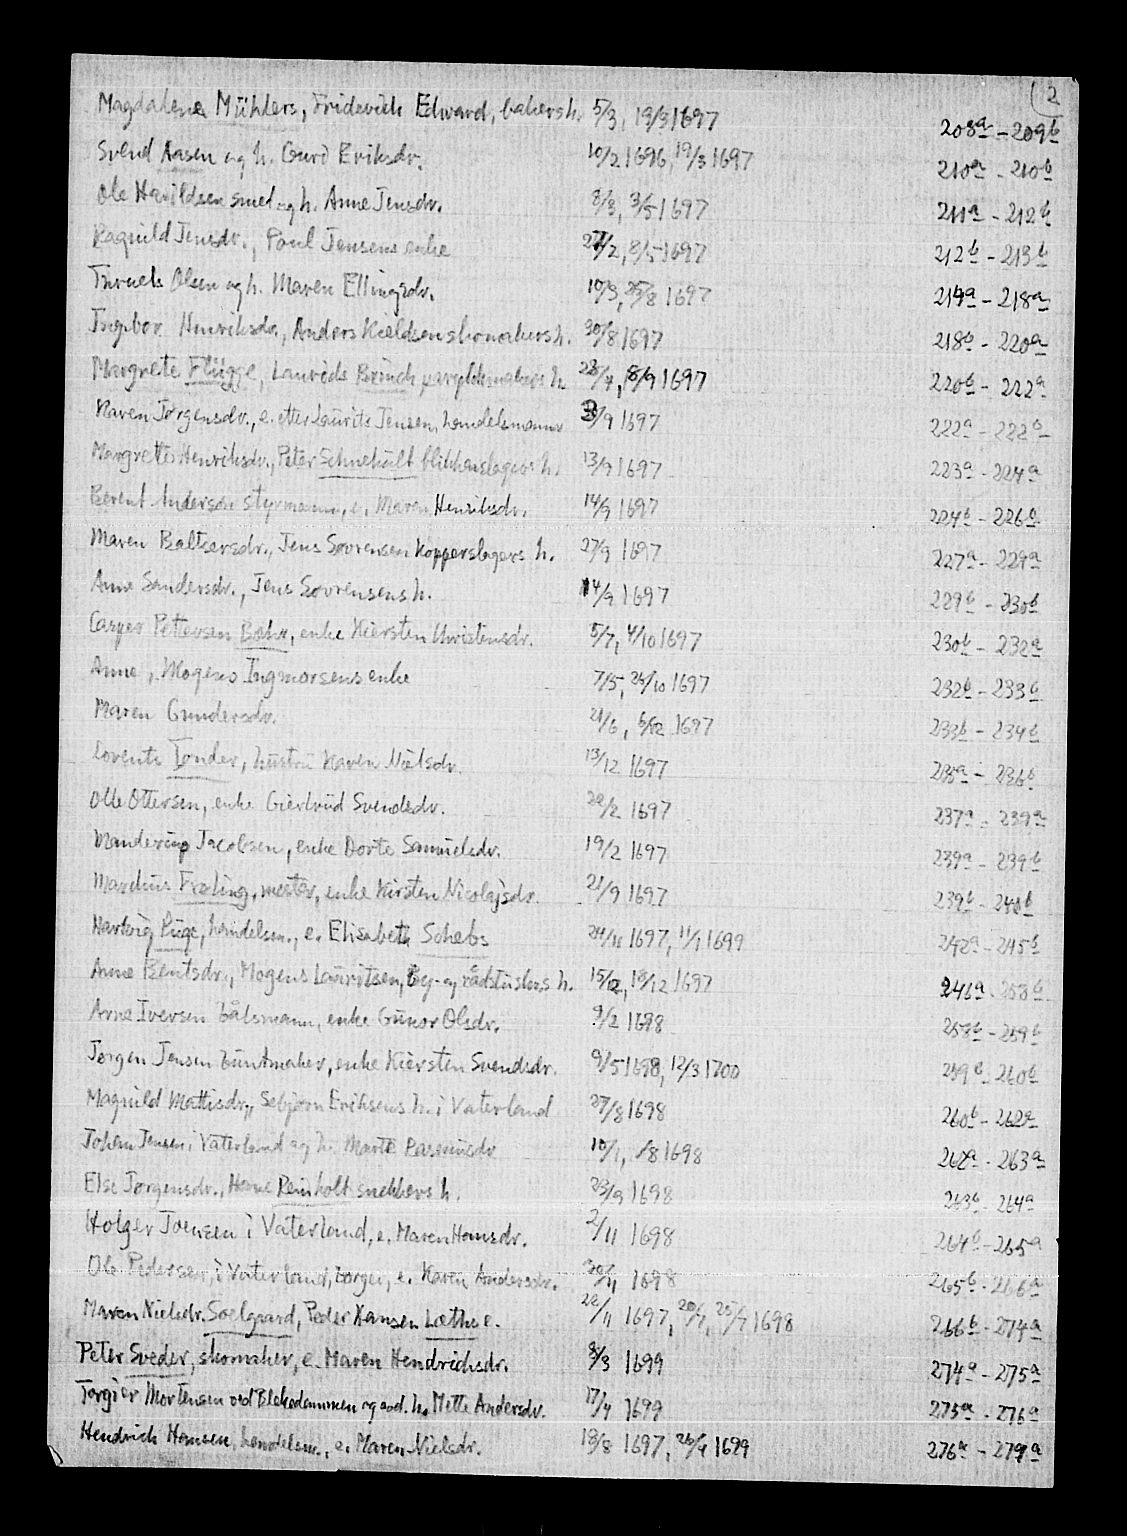 (2
Magdalene Mühlers, Friderich Edward, bakers h. 5/3, 19/3 1697 208a - 209b
Svend Aasen og h. Gurd Eriksdr. 10/2 1696, 19/3 1697 210a - 210b
Ole Harildsen smed og h. Anne Jensdr. 8/3, 3/5 1697 211a - 212b
Ragnild Jensdr., Poul Jensens enke 27/2, 8/5 1697 212b - 213b
Truels Olsen og h. Maren Ellingsdr. 10/3, 25/8 1697 214a - 218a
Ingebor Henriksdr., Anders Kieldsen skomakers h. 30/8 1697 218b - 220a
Margrete Flügge, Laurids Brinch h. 28/7, 8/9 1697 220b - 222a
Karen Jørgensdr., e. etter Laurits Jensen, handelsmann 3/9 1697 222a - 222a
Margrette Henriksdr., Peter Schnehült blikkenslagers h. 13/9 1697 223a - 224a
Berent Andersen styrmann, e. Maren Henriksdr. 14/9 1697 224b - 226b
Maren Baltsersdr., Jens Sørensen kopperslagers h. 27/9 1697 227a - 229a
Anne Sandersdr., Jens Sørensens h. 14/9 1697 229b - 230b
Casper Pettersen Bøhr, enke Kiersten Christensdr. 5/7, 4/10 1697 230b - 232a
Anne, Mogens Ingmorsens enke 7/5, 26/10 1697 232b - 233b
Maren Gundersdr. 21/6, 6/12 1697 233b - 234b
Lorents Tønder, hustru Karen Nielsdr. 13/12 1697 235a - 236b
Olle Ottersen, enke Giertrud Svendsdr. 22/2 1697 237a - 239a
Jacobsen, enke Dorte Samuelsdr. 19/2 1697 239a - 239b
Mardius Frøling, mester, enke Kirsten Nicolajsdr. 21/9 1697 239b - 240b
Hartvig Püge, handelsm., e. Elisabeth Schebs 24/11 1697, 11/1 1699 242a - 245b
Anne Bentsdr., Mogens Lauritsen, by- og rådstuskrs h. 15/12, 18/12 1697 246a - 258b
Arne Iversen båtsmann, enke Gunor Olsdr. 9/2 1698 258b - 259b
Jørgen Jensen buntmaker, enke Kiersten Svendsdr. 9/5 1698, 12/3 1700 259b - 260b
Magnild Mattisdr., Sebjørn Eriksens h. i Vaterland 27/8 1698 260b - 262a
Johan Jensen i Vaterland og h. Marte Rasmusdr 10/1, /8 1698 262a - 263a
Else Jørgensdr., Hans Reinholt snekkers h. 23/9 1698 263b - 264a
Holger Joensen i Vaterland, e. Maren Hansdr. 2/11 1698 264b - 265a
Ole Pedersen, i Vaterland, borger, e. Karen Andersdr. 30/11 1698 265b - 266a
Maren Nielsdr. Soelgaard, Peder Hansen Lœthe e. 22/11 1697, 20/7, 25/7 1698 266b - 274a
Peter Sveder, skomaker, e. Maren Hendrichsdr. 8/3 1699 274a - 275a
Torgier Mortensen ved Blekedammen og avd. h. Mette Andersdr. 17/4 1699 275a - 276a
Hendrich Hansen, handelsm., e. Maren Nielsdr. 18/8 1697, 26/4 1699 276a - 279a